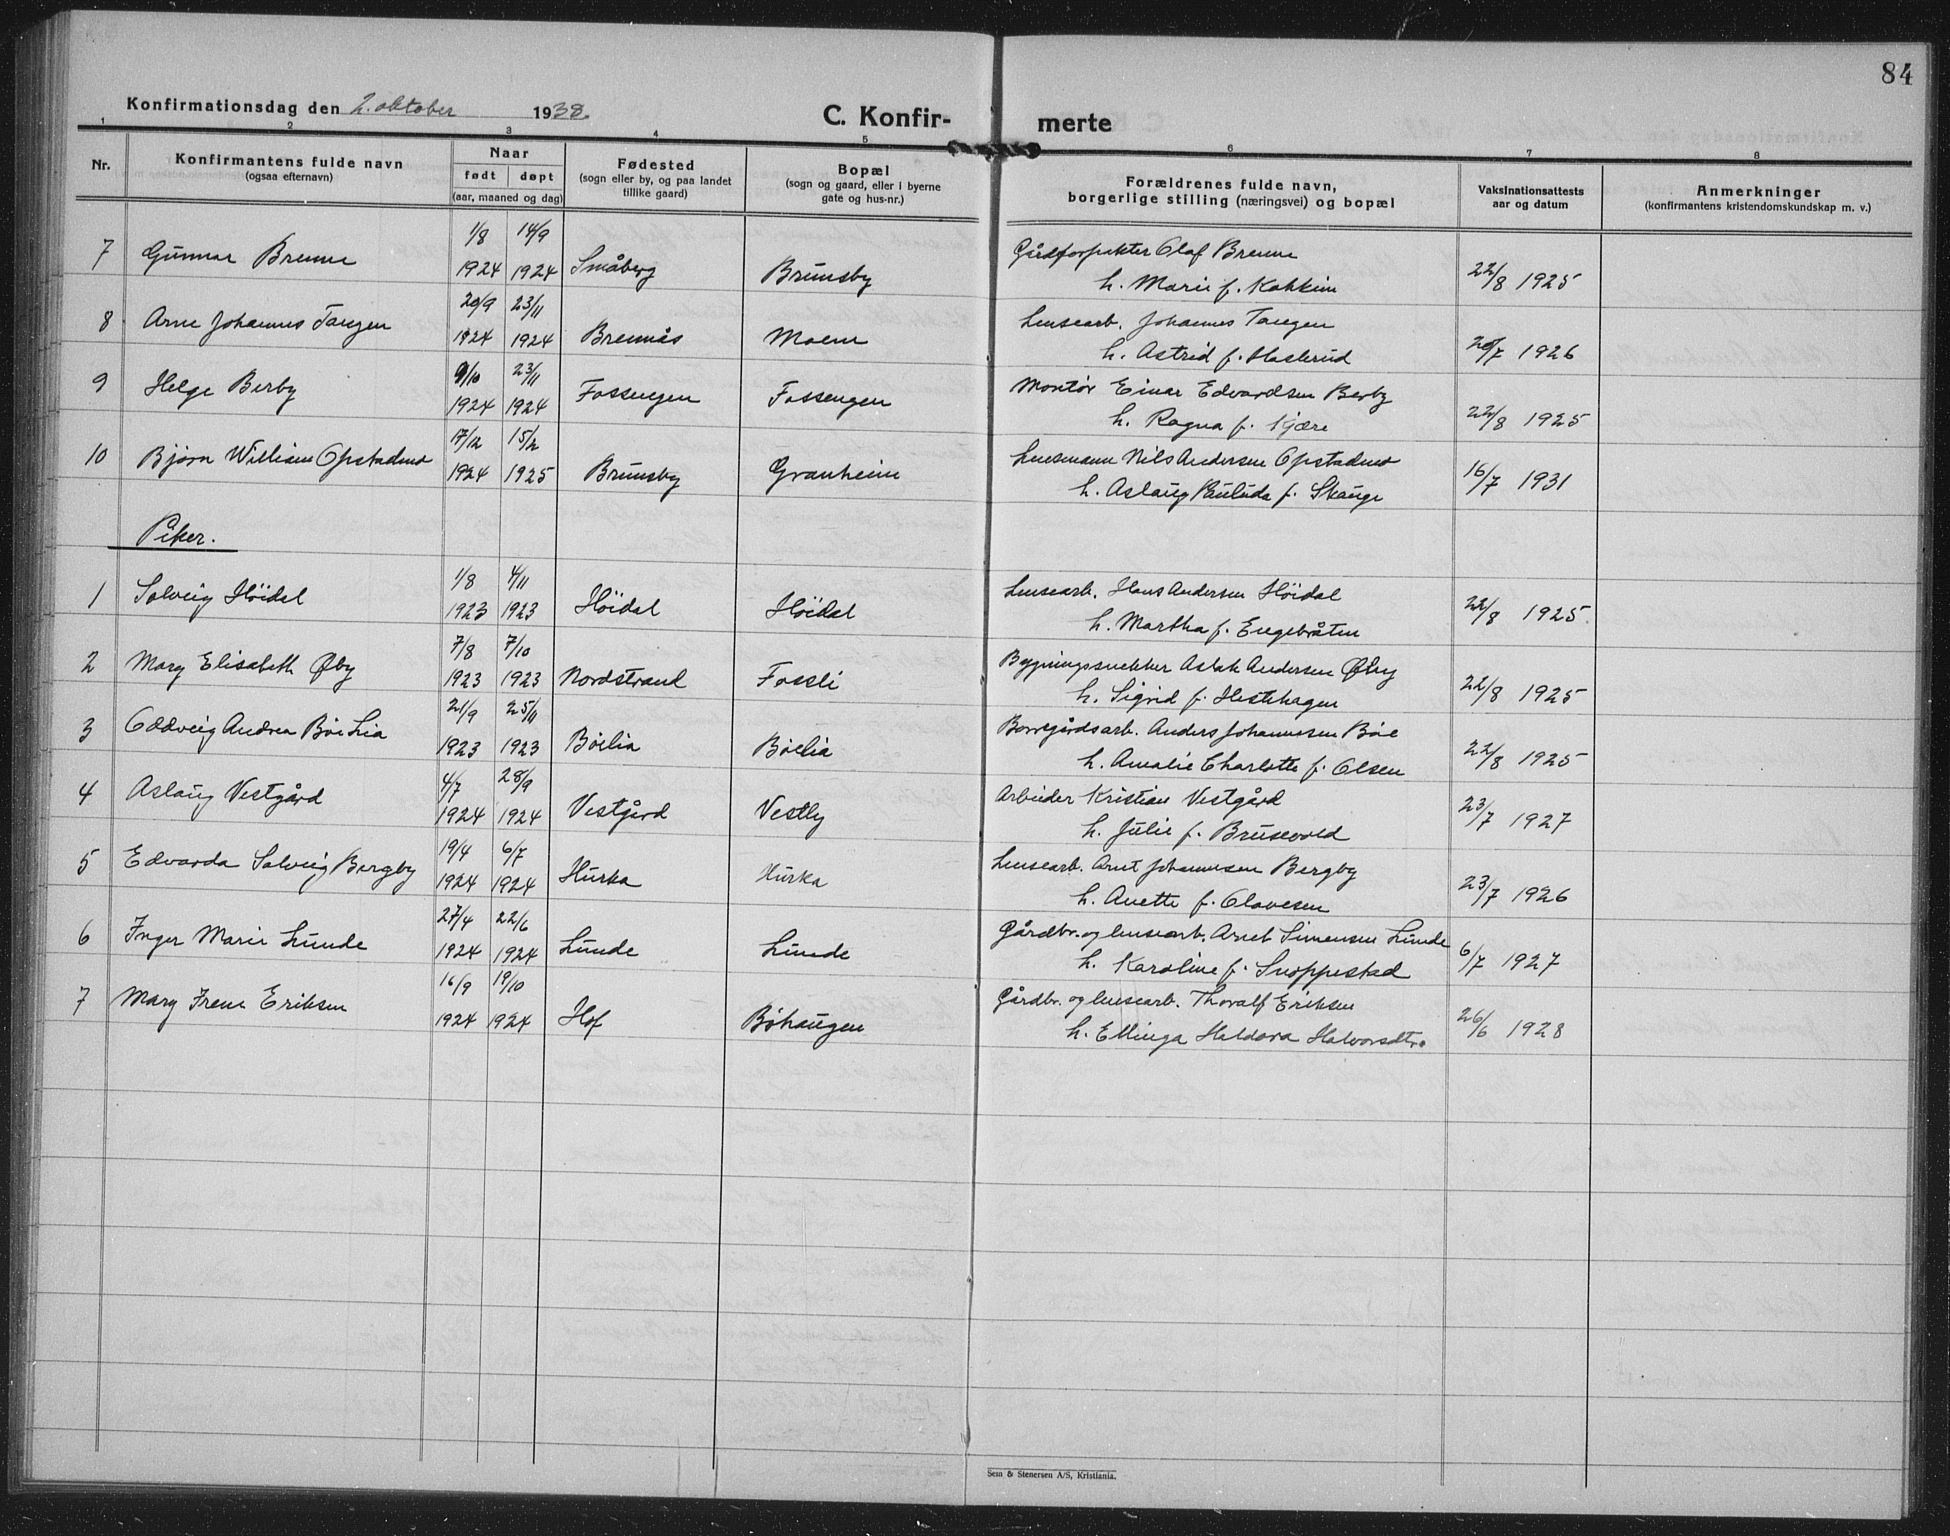 84
Konfirmationsdag den 2. oktober 1938.
C. Konfir- merte
1 2 3 4 5 6 7 8
Nr.
Konfirmantens fulde navn
(ogsaa efternavn)
Naar
født døpt
(aar, maaned og dag)
Fødested
(sogn eller by, og paa landet
tillike gaard)
Bopæl
(sogn og gaard, eller i byerne
gate og hus-nr.)
Forældrenes fulde navn,
borgerlige stilling (næringsvei) og bopæl
Vaksinationsattests
aar og datum
Anmerkninger
(konfirmantens kristendomskundskap m. v.)
7 Gunnar Brenne 1/8 1924 14/9 1924 Småberg Brunsby Gårdforpakter Olaf Brenne 22/8 1925
h. Marie f. Kokkim
8 Arne Johannes Tangen 20/9 1924 23/11 1924 Brennås Moen Lensearb. Johannes Tangen 20/7 1926
h. Astrid f. Haslerud
9 Helge Berby 9/10 1924 23/11 1924 Fossengen Fossengen Montør Einar Edvardsen Berby 22/8 1925
h. Ragna f. Kjære
10 Bjørn William Opstadmo 17/12 1924 15/2 1925 Brunsby Granheim Lensmann Nils Andersen Opstadmo 16/7 1931
h. Aslaug Paulida f. Skauge
Piker.
1 Solveig Höidal 1/8 1923 4/11 1923 Höidal Höidal Lensearb. Hans Andersen Höidal 22/8 1925
h. Martha f. Engebråten
2 Mary Elisabeth Øby 7/8 1923 7/10 1923 Nordstrand Fossli Bygningssnekker Aslak Andersen Øby 22/8 1925
h. Sigrid f. Hestehagen
3 Oddveig Andrea Bøe Lia 21/9 1923 25/11 1923 Bøelia Bøelia Borregårdsarb. Anders Johannesen Bøe 22/8 1925
h. Amalie Charlotte f. Olsen
4 Aslaug Vestgård 4/7 1924 28/9 1924 Vestgård Vestby Arbeider Kristian Vestgård 23/7 1927
h. Julie f. Brusevold
5 Edvarda Solveig Bergby 19/4 1924 6/7 1924 Hurka Hurka Lensearb. Arnt Johannesen Bergby 23/7 1926
h. Anette f. Olavesen
6 Inger Marie Lunde 27/4 1924 22/6 1924 Lunde Lunde Gårdbr. og lensearb. Arnt Simensen Lunde 6/7 1927
h. Karoline f. Snoppestad
7 Mary Irene Eriksen 16/9 1924 19/10 1924 Hof Bøhaugen Gårdbr. og lensearb. Thoralf Eriksen 26/6 1928
h. Ellinga Haldora Halvorsdtr.
Sem & Stenersen A/S, Kristiania.